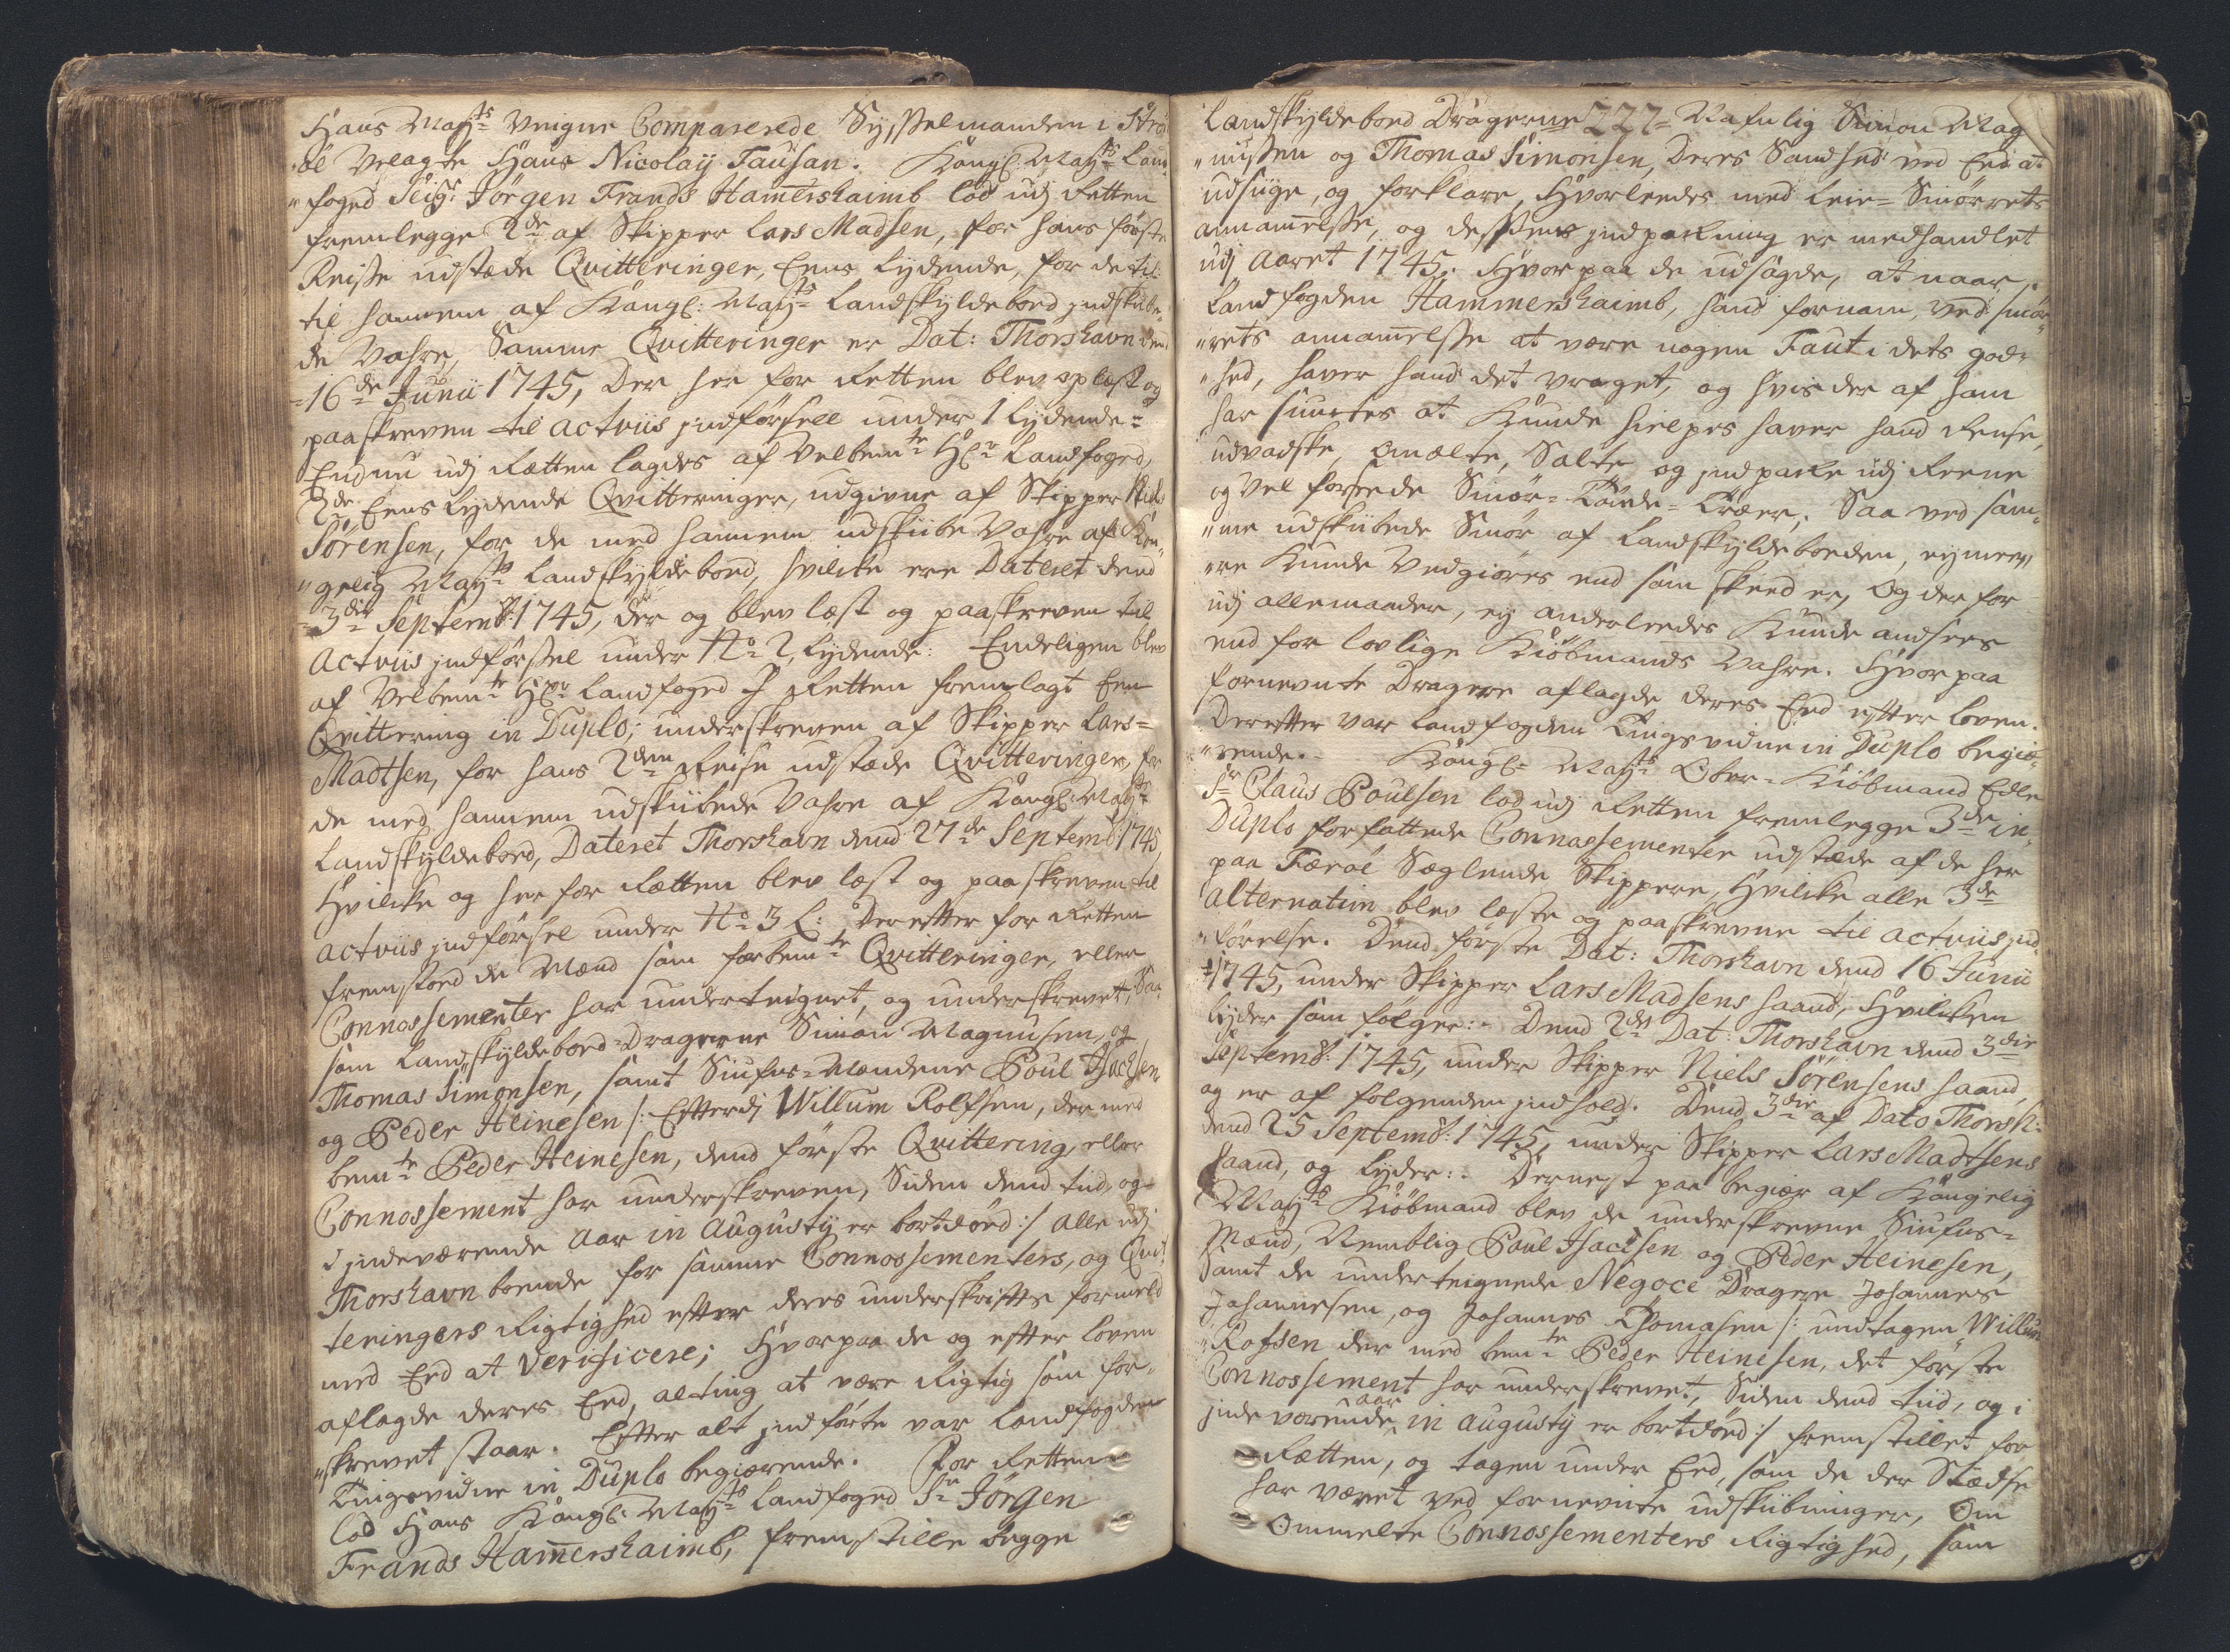 Hans Mayts Veigne Comparerede Sysselmanden i Strø
øe Velagte Hans Nicolaÿ Tausan. Kongl: Mayts Land
"foged Seigr Jörgen Frands Hamershaimb lod udj Retten
fremlegge 2de af Skipper Lars Madsen, for hans første
Reise udstæde Qvitteringer, Eens lydende, for de til
til hannem af Kongl: Mayts Landskyldeboed indskibe
de Vahre, Samme Qvitteringer er Dat: Thorshavn den
16de Junii 1745, Der her for Retten blev oplæst og
paaskreven til actviis indførsell under 1 lydende:
Endnu udj Rætten lagdes af Velbemte Hr Landfoged,
2de Eens lydende Qvitteringer, udgivne af Skipper Niels
Sörensen, for de med hannem udskibte Vahre af Kon
"gelig Mayts Landskyldeboed, hvilcke ere Dateret dend
3die Septembr 1745, der og blev læst og paaskreven til
Actviis indførssel under No 2, lydende: Endeligen blev
af Velbemte Hr Landfoged J Retten fremlagt Een
Qvittering in Duplo; underskreven af Skipper Lars
Madtsen, for hans 2den Reise udstæde Qvitteringer, for
de med hannem udskibede Vahre af Kongl: Mayts
Landskyldeboed, Dateret Thorshavn dend 27de Septembr 1745
Hvilcke og her for Rætten blev læst og paaskreven til
actviis indførsel under No 3 L: Derefter for Retten
fremstoed de Mænd som forbemte Qvitteringer, eller
Connossementer har underteignet, og underskrevet, Saa
som Landskyldeboed-Dragerne Simon Magnusen, og
Thomas Simonsen, samt Siufns-Mændene Poul Isachsen
og Peder Heinesen /: Efterdj Willum Rolfsen, der med
bemte Peder Heinesen, dend første Qvittering, eller
Connossement har underskreven, Siden dend tid, og
i indeværende Aar in Augusty er bortdöed :/ alle udj
Thorshavn boende for samme Connossementers, og Qvit
teringers Rigtighed efter deres underskrifte formeld
med Eed at verificere; Hvorpaa de og efter loven
aflagde deres Eed, alting at være Rigtig som for
"skrevet staar. Efter alt indførte var Landfogden
Tingsvidne in Duplo begiærende. For Retten
lod Hans Kongl: Mayts Landfoged Sr Jörgen
Frands Hamershaimb, fremstille begge
Landskyldeboed Dragerne 227 Nafnlig Simon Mag
"nussen og Thomas Simonsen, Deres Sandhed ved Eed at
udsiige, og forklare, Hvorleedes med Leie-Smørrets
annamelsse, og dessens indpakning er medhandlet
udj Aaret 1745. Hvorpaa de udsagde, at naar
Landfogden Hammershaimb, hand fornam, ved smør
"rets annamelsse at være nogen Faut i dets god
"hed, haver hand det vraget, og hvis der af ham
har siuntes at Kunde hielpes haver hand Rense,
udvadske, omælte, Salte og indpakke udj Reene
og Vel forseede Smør-Tønde-Træer; Saa ved sam
"me udskibede Smør af Landskyldeboeden, ey mee
"re Kunde Vedgiøres end som skeed er, Og der for
udj allemaader, ey anderleedes Kunde andsees
end for lovlige Kiøbmands Vahre. Hvorpaa
fornevnte Dragere aflagde deres Eed efter loven.
Derefter var Landfogden Tingsvidne in Duplo begiæ
"rende. Kongl: Mayts Ober-Kiøbmand Edle
Sr Claus Poulsen lod udj Retten fremlegge 3de in
Duplo forfattede Connossementer udstæde af de her
paa Færøe Seglende Skippere, Hvilcke alle 3de
alternatim blev læste og paaskrevne til actviis ind
"førelse. Dend første Dat: Thorshavn dend 16 Junii
1745, under Skipper Lars Madsens haand, Hvilcken
lyder som følger: Dend 2den Dat: Thorshavn dend 3die
Septembr: 1745, under Skipper Niels Sörensens haand
og er af følgenden indhold. Dend 3die af Dato Thorsh:
dend 25 Septembr: 1745, under Skipper Lars Madtsens
haand, og lyder: Dernest paa begiær af Kongelig
Mayts Kiøbmand blev de underskrevne Siufns
Mænd, Nemblig Poul Isachsen og Peder Heinesen,
Samt de underteignede Negoce Dragere Johannes
Johannesen, og Johannes Thomasen /: undtagen Willum
"Rofsen der med bemte Peder Heinesen, det første
Connossement har underskrevet, Siden dend tiid, og i
inde værende aar in Augusty er bortdöed :/ fremstillet for
Rætten, og tagen under Eed, som de der Stædse
har været ved fornevnte udskibninger, Om
Ommelte Connossementers Rigtighed, som